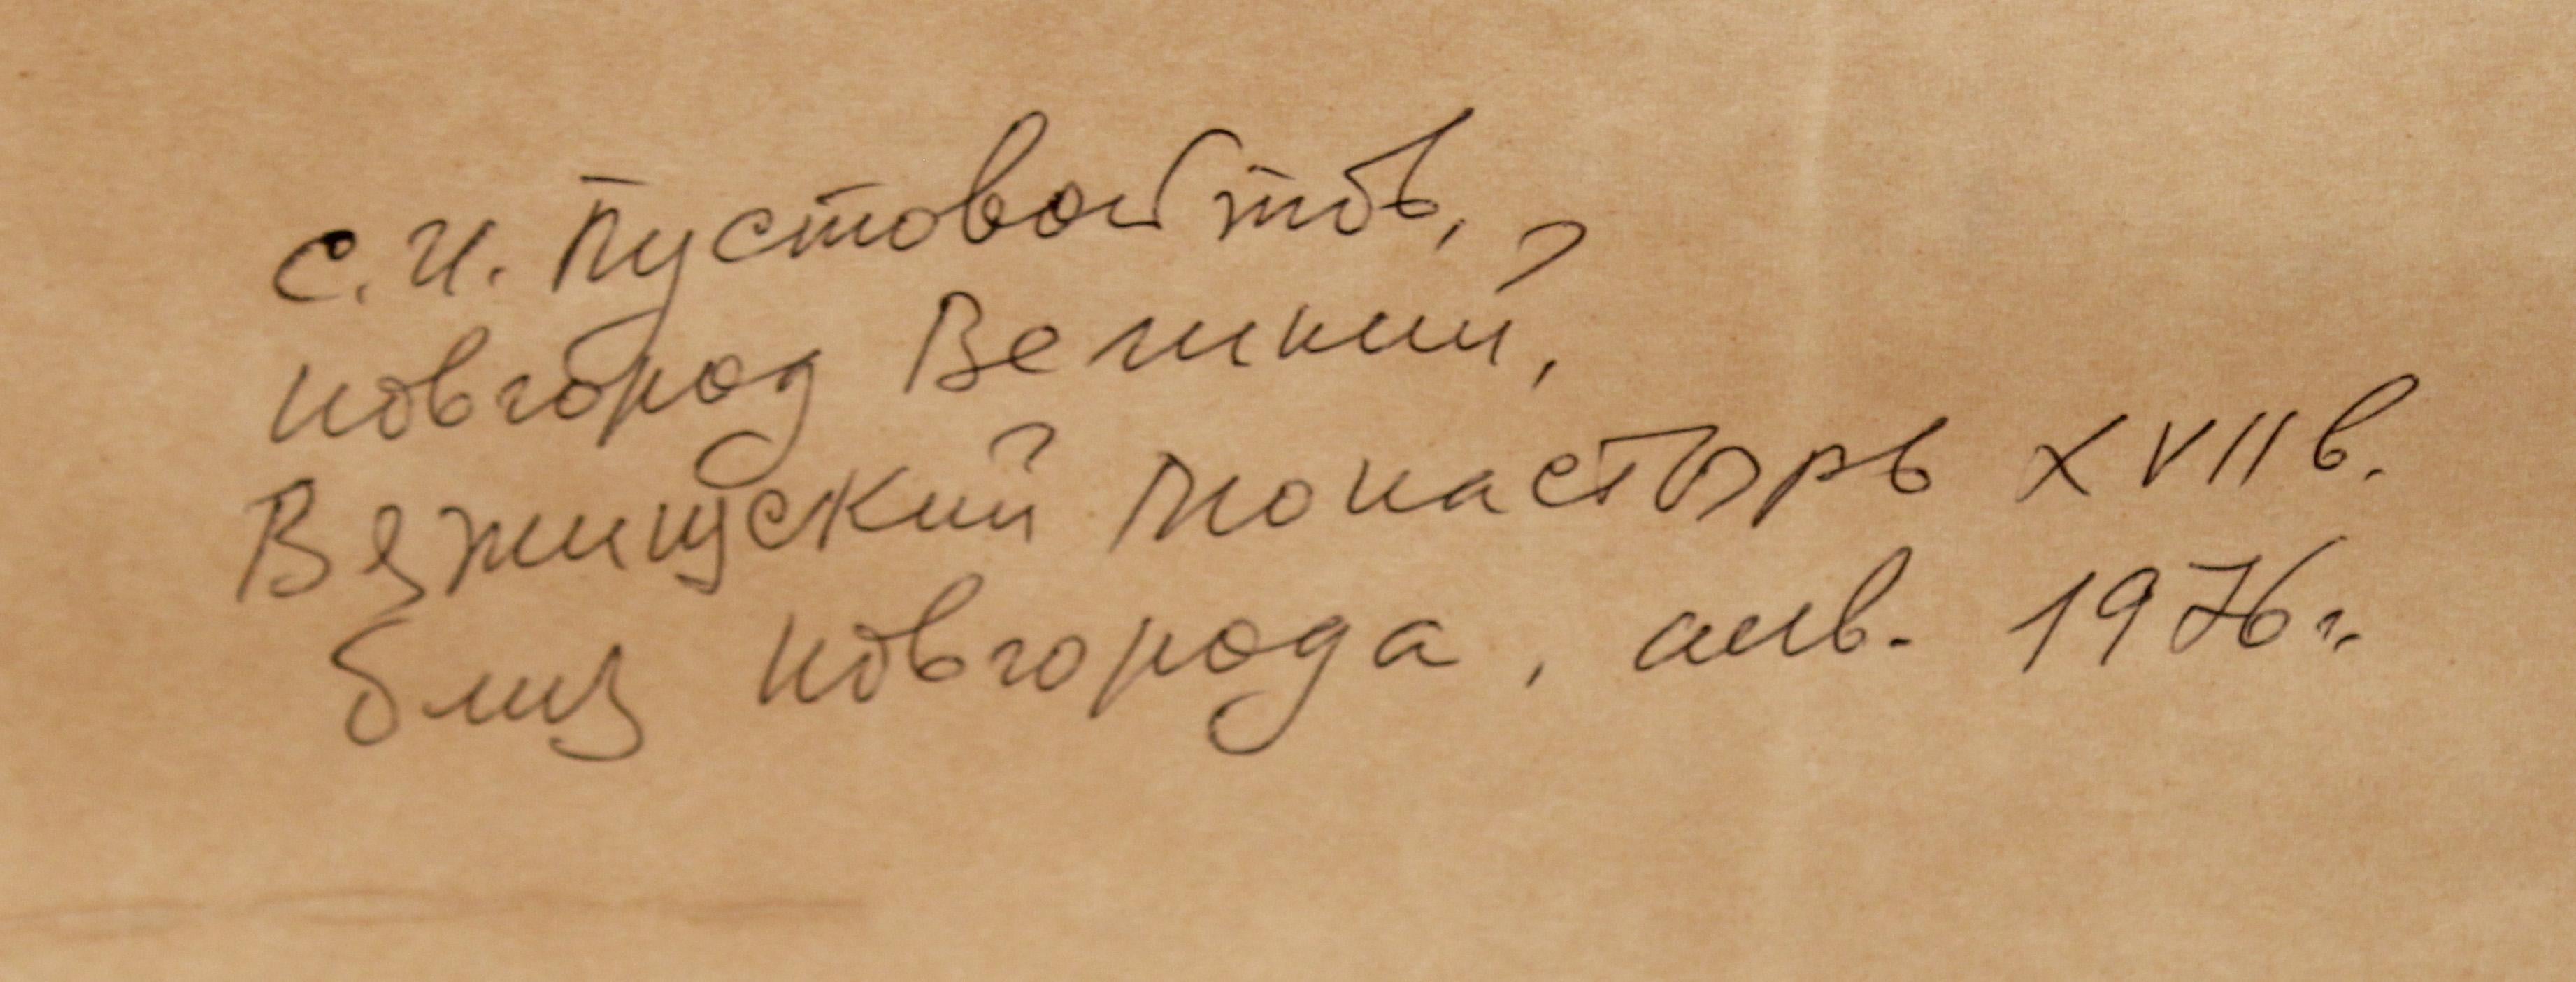 С.И. Пустовойтов,
Новгород Великий,
Вяжищский монастырь XVII в.
близ Новгорода, янв. 1976 г.